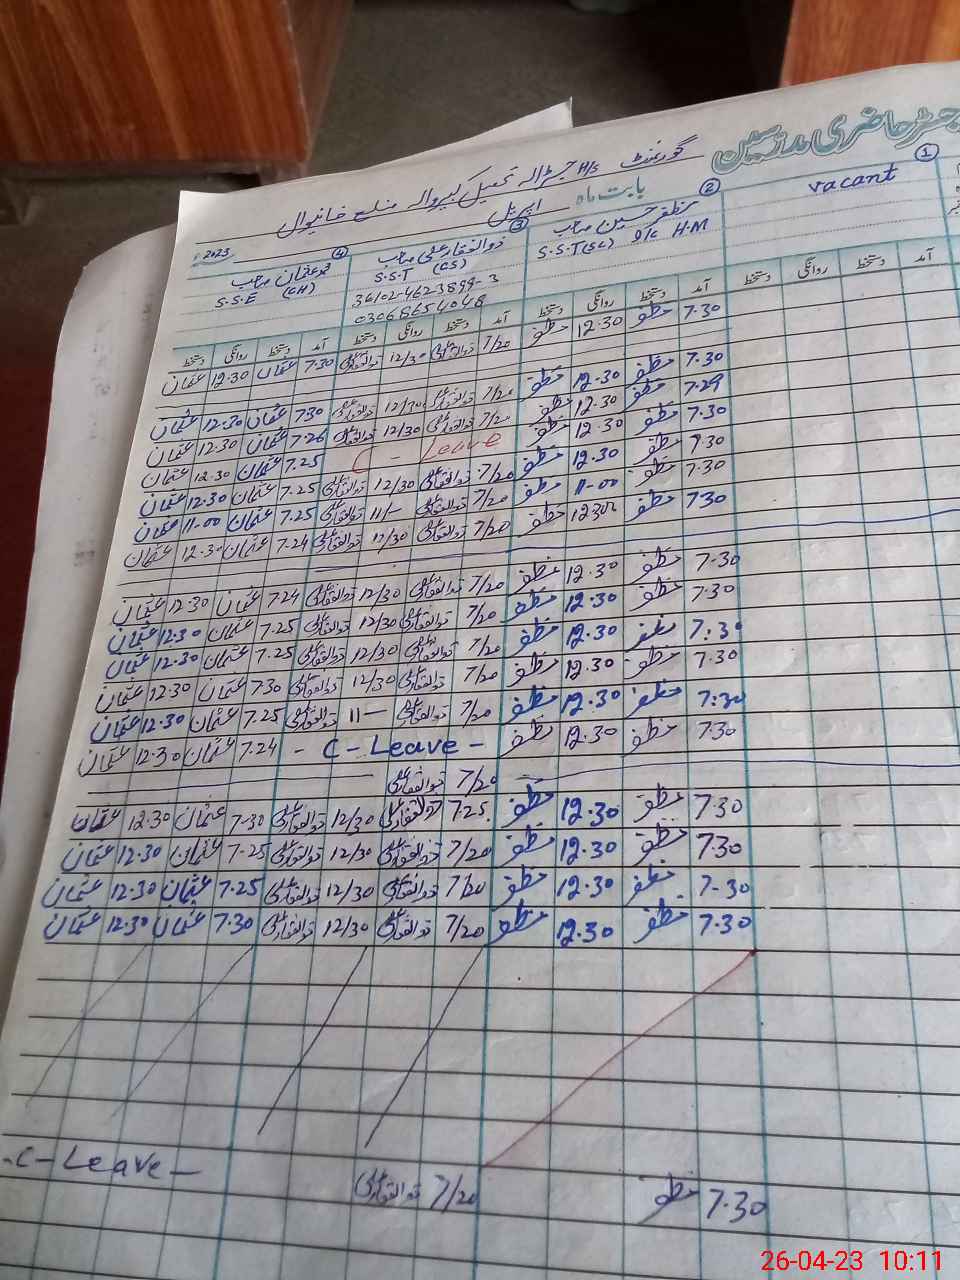 رجسٹر حاضری مدرسین
گورنمنٹ H/S جڑالہ تحصیل کبیروالہ ضلع خانیوال
بابت ماہ اپریل 2023
1
vacant
2
مظفر حسین صاحب
S.S.T (SC) I/C H.M
3
ذوالفقار علی صاحب
S.S.T (CS)
36102-4623899-3
03068654048
4
محمد عثمان صاحب
S.S.E (CH)
آمد دستخط روانگی دستخط آمد دستخط روانگی دستخط آمد دستخط روانگی دستخط آمد دستخط روانگی دستخط
7.30 مظفر 12.30 مظفر 7/20 ذوالفقار علی 12/30 ذوالفقار علی 7.30 عثمان 12.30 عثمان
7.30 مظفر 12.30 مظفر 7/20 ذوالفقار علی 12/30 ذوالفقار علی 7.30 عثمان 12.30 عثمان
7.29 مظفر 12.30 مظفر 7/20 ذوالفقار علی 12/30 ذوالفقار علی 7.26 عثمان 12.30 عثمان
7.30 مظفر 12.30 مظفر C - Leave 7.25 عثمان 12.30 عثمان
7.30 مظفر 12.30 مظفر 7/20 ذوالفقار علی 12/30 ذوالفقار علی 7.25 عثمان 12.30 عثمان
7.30 مظفر 11-00 مظفر 7/20 ذوالفقار علی 11/- ذوالفقار علی 7.25 عثمان 11-00 عثمان
7.30 مظفر 12.30 مظفر 7/20 ذوالفقار علی 12/30 ذوالفقار علی 7.24 عثمان 12.30 عثمان
7.30 مظفر 12.30 مظفر 7/20 ذوالفقار علی 12/30 ذوالفقار علی 7.24 عثمان 12.30 عثمان
7.30 مظفر 12.30 مظفر 7/20 ذوالفقار علی 12/30 ذوالفقار علی 7.25 عثمان 12.30 عثمان
7:30 مظفر 12.30 مظفر 7/20 ذوالفقار علی 12/30 ذوالفقار علی 7.25 عثمان 12.30 عثمان
7.30 مظفر 12.30 مظفر 7/20 ذوالفقار علی 12/30 ذوالفقار علی 7.30 عثمان 12.30 عثمان
7:30 مظفر 12.30 مظفر 7/20 ذوالفقار علی 11- ذوالفقار علی 7.25 عثمان 12.30 عثمان
7.30 مظفر 12.30 مظفر - C - Leave - 7.24 عثمان 12.30 عثمان
7/20 ذوالفقار علی
7.30 مظفر 12.30 مظفر 7.25 ذوالفقار علی 12/30 ذوالفقار علی 7.30 عثمان 12.30 عثمان
7.30 مظفر 12.30 مظفر 7/20 ذوالفقار علی 12/30 ذوالفقار علی 7.25 عثمان 12.30 عثمان
7-30 مظفر 12.30 مظفر 7/20 ذوالفقار علی 12/30 ذوالفقار علی 7.25 عثمان 12.30 عثمان
7.30 مظفر 12.30 مظفر 7/20 ذوالفقار علی 12/30 ذوالفقار علی 7.30 عثمان 12.30 عثمان
7.30 مظفر 7/20 ذوالفقار علی - C - Leave -
26-04-23 10:11